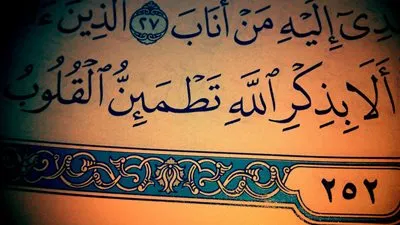 دِىٓ إِلَيْهِ مَنْ أَنَابَ ٢٧ ٱلَّذِينَ ءَ
أَلَا بِذِكْرِ ٱللَّهِ تَطْمَئِنُّ ٱلْقُلُوبُ
٢٥٢